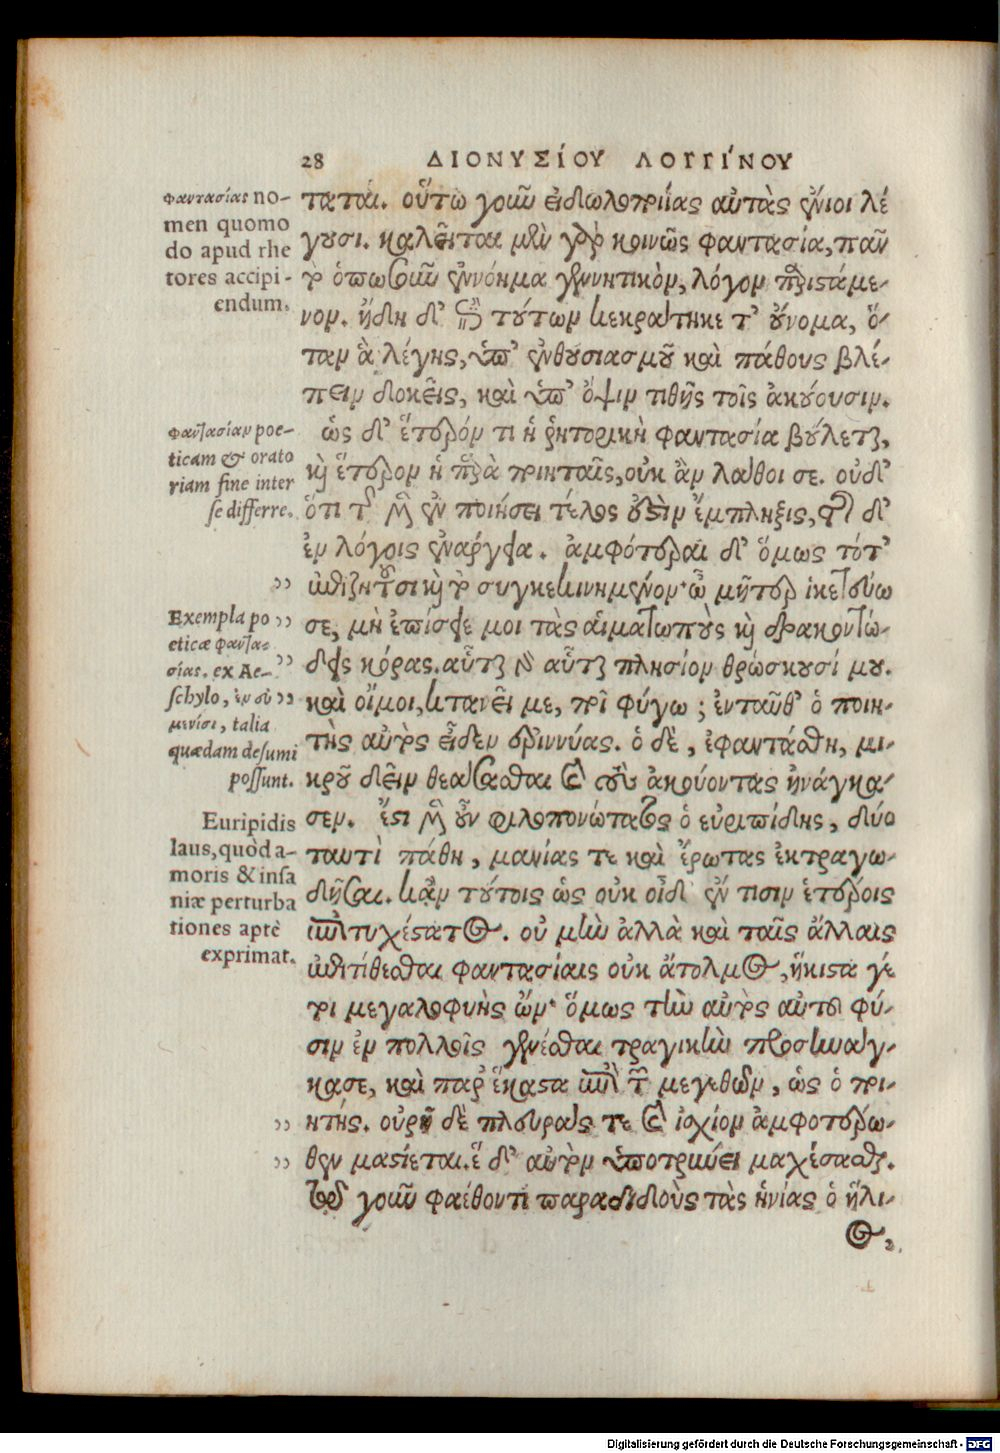 28 ΔΙΟΝΥΣΊΟΥ ΛΟΓΓΊΝΟΥ
φαντασίας no-
men quomo
do apud rhe
tores accipi-
endum.
τάται. οὕτω γοῦν εἰδωλοποιΐας αὐτὰς ἔνιοι λέ
γουσι. καλεῖται μὲν γὰρ κοινῶς φαντασία, πᾶν
τὸ ὁπωσοῦν ἐννόημα γεννητικὸν, λόγου παριστάμε-
νον. ἤδη δ' ἐπὶ τούτων κεκράτηκε τ' ούνομα, ὅ-
ταν ἃ λέγῃς, ὑπ' ἐνθουσιασμοῦ καὶ πάθους βλέ-
πειν δοκεῖς, καὶ ὑπ' ὄψιν τιθῇς τοῖς ἀκούουσιν.
φαντασίαν poe-
ticam & orato
riam fine inter
se differre.
ὡς δ' ἕτερόν τι ἡ ῥητορικὴ φαντασία βούλεται,
καὶ ἕτερον ἡ παρὰ ποιηταῖς, οὐκ ἂν λάθοι σε. οὐδ'
ὅτι τῆς μὲν ἐν ποιήσει τέλος ὀυστὶν ἔμπληξις, τῆς δ'
ἐν λόγοις ἐνάργεια. ἀμφότεραι δ' ὅμως τότ'
ἐπιζητοῦσι καὶ τὸ συγκεκινημένον· ὦ μῆτερ ἱκετεύω
Exempla po
eticæ φαντα-
σίας. ex Ae-
schylo, ἐν εὐ
μενίσι, talia
quædam desumi
possunt.
σε, μὴ ἐπίσειέ μοι τὰς αἱματωποὺς καὶ δρακοντώ-
δεις κόρας. αὗται γὰρ αὗται πλησίον θρώσκουσί μου.
καὶ οἴμοι, κτανεῖ με, ποῖ φύγω; ἐνταῦθ' ὁ ποιη-
τὴς αὐτὸς εἶδεν ἐριννύας. ὁ δὲ, ἐφαντάσθη, μι-
κροῦ δεῖν θεάσασθαι καὶ τοὺς ἀκούοντας ἠνάγκα-
σεν. ἔστι μὲν οὖν φιλοπονώτατος ὁ εὐριπίδης, δύο
Euripidis
laus, quòd a-
moris & insa
niæ perturba
tiones aptè
exprimat.
ταυτὶ πάθη, μανίας τε καὶ ἔρωτας ἐκτραγῳ-
δῆσαι. κἂν τούτοις ὡς οὐκ οἶδ' ἐν τισιν ἑτέροις
ἐπιτυχέστατος. οὐ μὴν ἀλλὰ καὶ ταῖς ἄλλαις
ἐπιτίθεσθαι φαντασίαις οὐκ ἄτολμος, ἥκιστα γέ
τοι μεγαλοφυὴς ὢν· ὅμως τὴν αὐτὸς αὐτοῦ φύ-
σιν ἐν πολλοῖς γενέσθαι τραγικὴν προσηνάγ-
κασε, καὶ παρ' ἕκαστα ἐπὶ τῶν μεγεθῶν, ὡς ὁ ποι-
ητής. οὐρῇ δὲ πλευράς τε καὶ ἰσχίον ἀμφοτέρω-
θεν μαστίεται. ἓ δ' αὐτὸν ὑποτρύνει μαχέσασθαι.
τῷ γοῦν φαέθοντι παραδιδοὺς τὰς ἡνίας ὁ ἥλι-
ος,
Digitalisierung gefördert durch die Deutsche Forschungsgemeinschaft - DFG